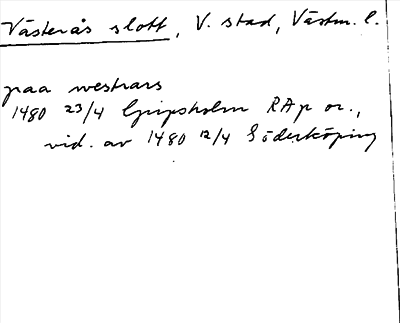 Västerås slott, V. stad, Västm. l.
paa westrars
1480 23/4 Gripsholm RAp or.,
vid. av 1480 12/4 Söderköping